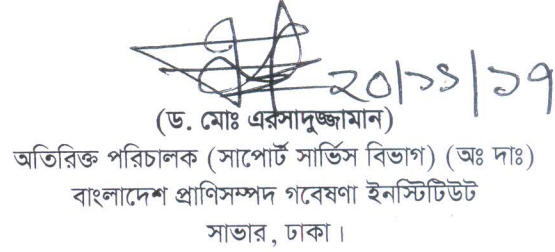 ২০/১১/১৭
(ড. মোঃ এরসাদুজ্জামান)
অতিরিক্ত পরিচালক (সাপোর্ট সার্ভিস বিভাগ) (অঃ দাঃ)
বাংলাদেশ প্রাণিসম্পদ গবেষণা ইনস্টিটিউট
সাভার, ঢাকা।